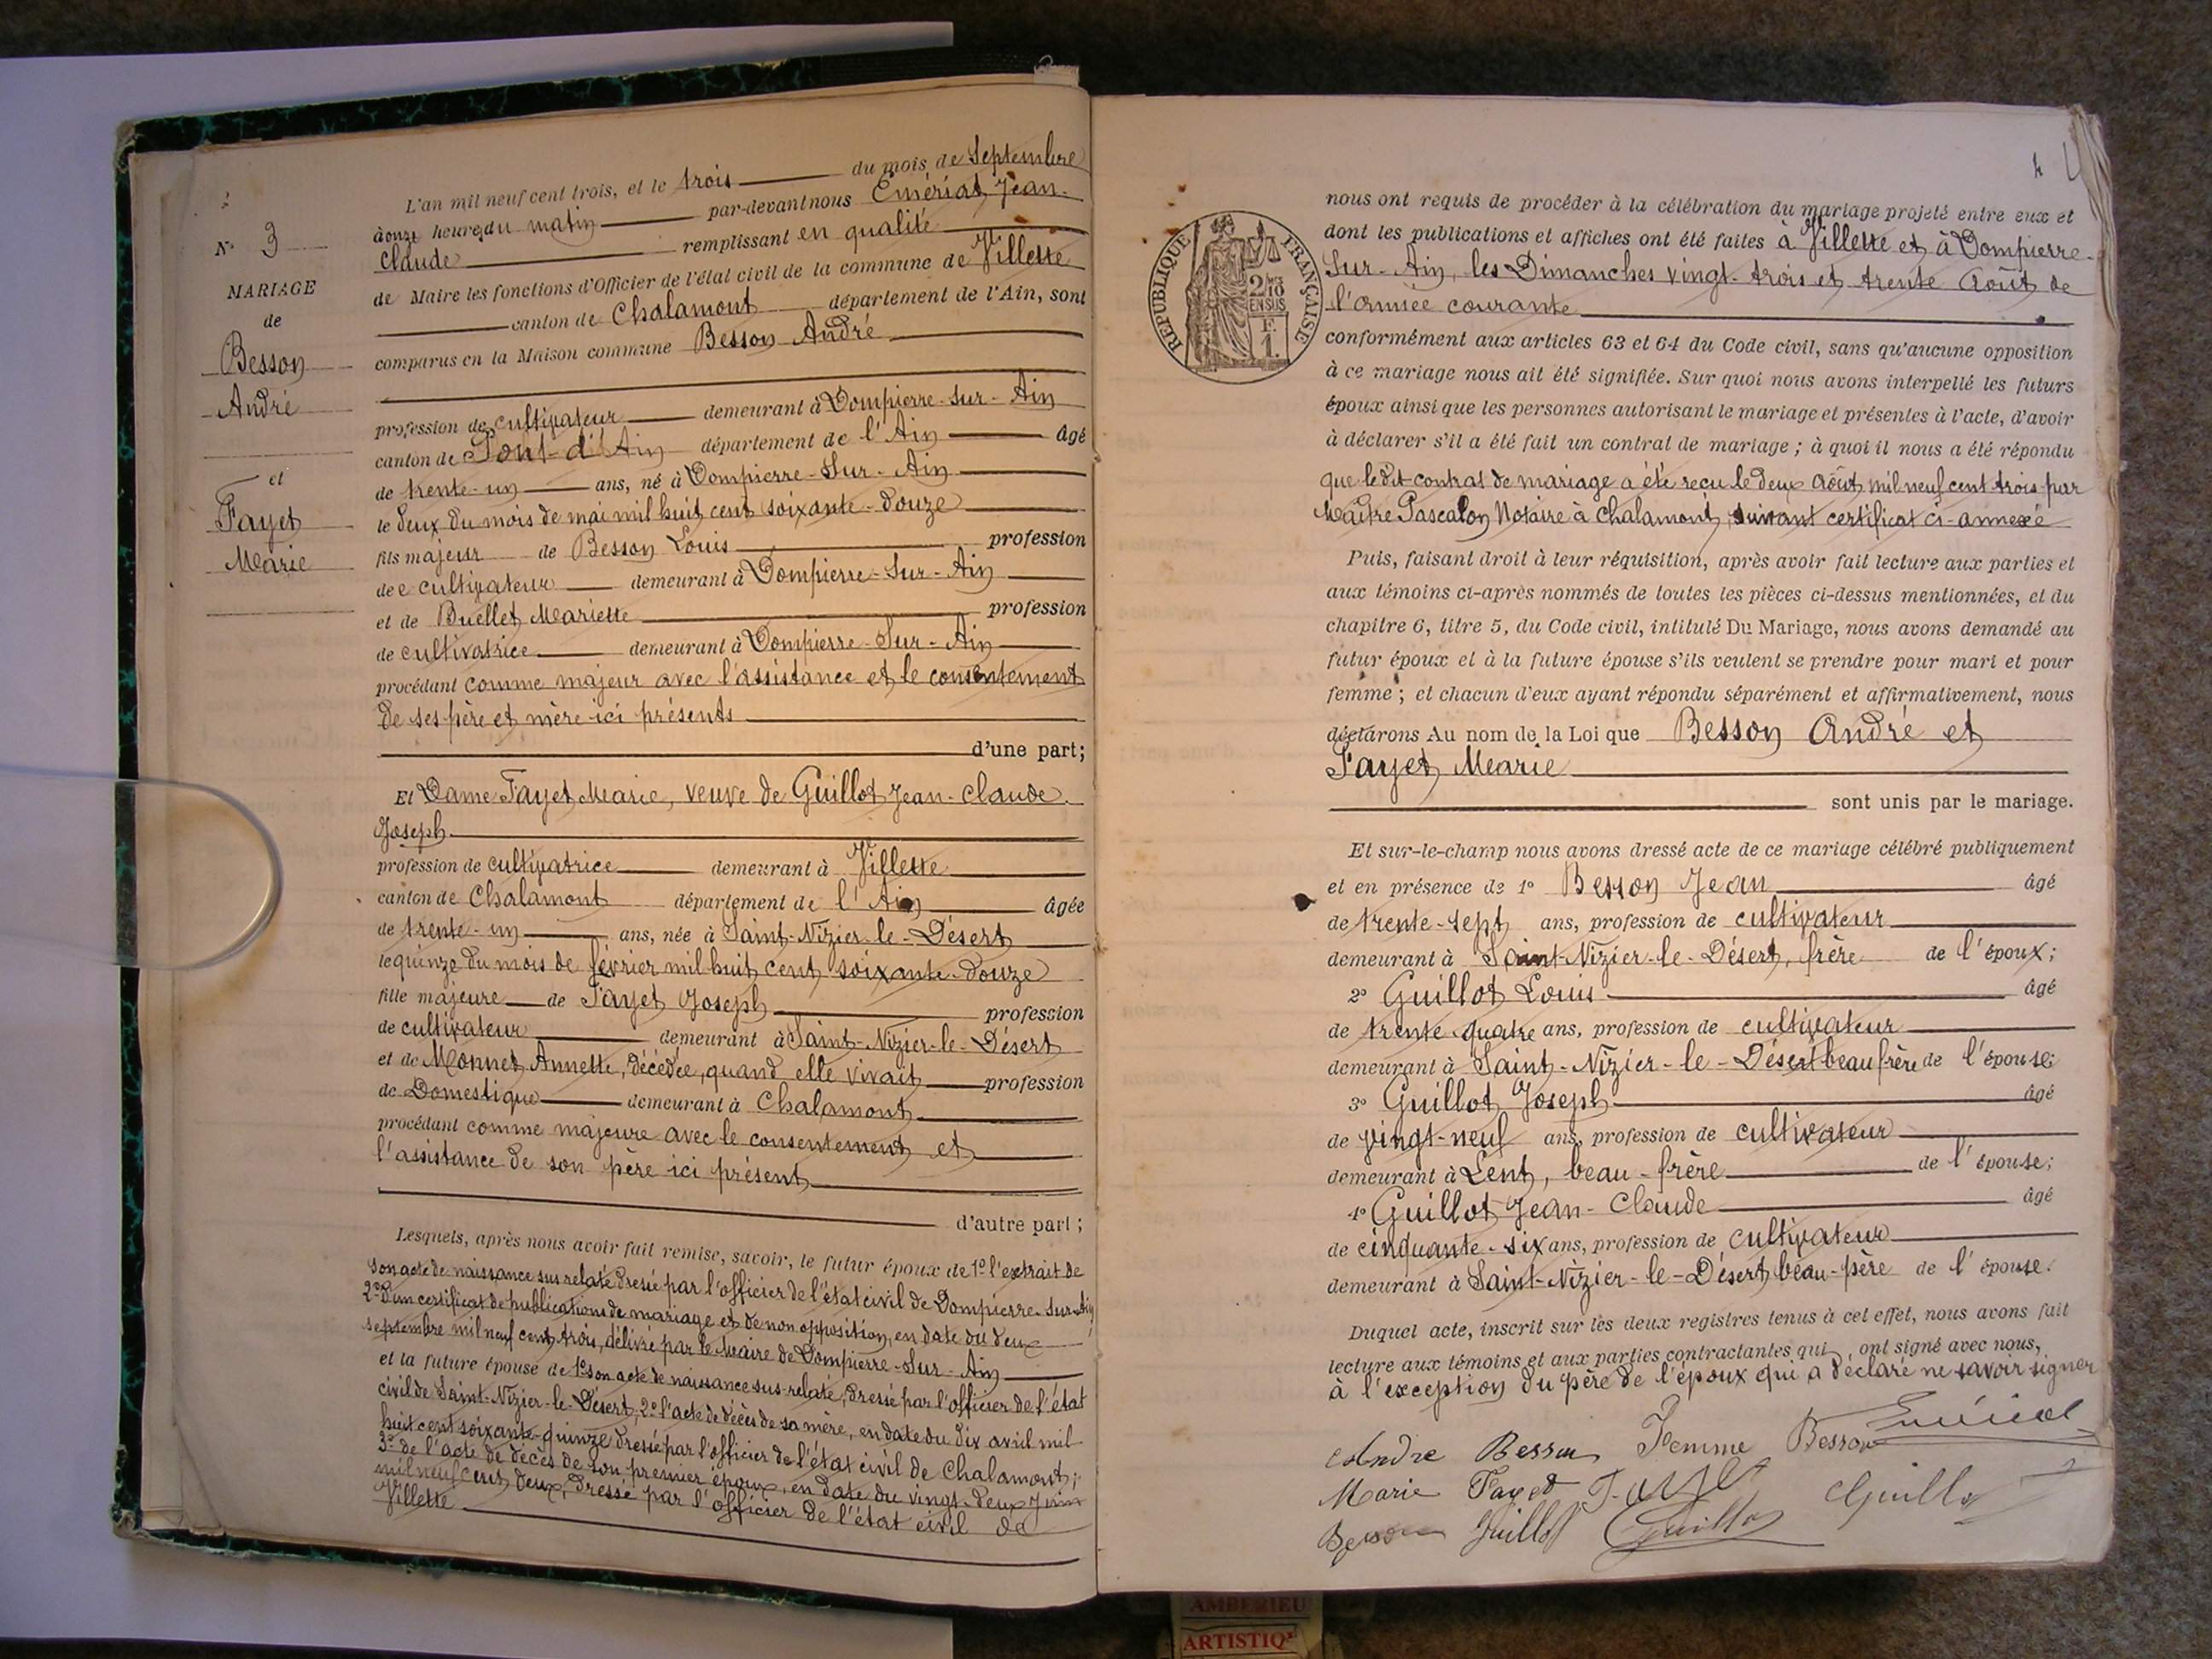 N° 3
MARIAGE
de
Besson
André
et
Fayet
Marie
L'an mil neuf cent trois, et le trois du mois de Septembre
à onze heures du matin par-devant nous Emériat Jean-
Claude remplissant en qualité
de Maire les fonctions d'Officier de l'état civil de la commune de Villette
canton de Chalamont département de l'Ain, sont
comparus en la Maison commune Besson André
profession de cultivateur demeurant à Dompierre-Sur-Ain
canton de Pont-d'Ain département de l'Ain âgé
de trente-un ans, né à Dompierre-Sur-Ain
le deux du mois de mai mil huit cent soixante-douze
fils majeur de Besson Louis profession
de cultivateur demeurant à Dompierre-Sur-Ain
et de Buellet Mariette profession
de cultivatrice demeurant à Dompierre-Sur-Ain
procédant comme majeur avec l'assistance et le consentement
de ses père et mère ici présents
d'une part;
Et Dame Fayet Marie, veuve de Guillot Jean-Claude
Joseph
profession de cultivatrice demeurant à Villette
canton de Chalamont département de l'Ain âgée
de trente-un ans, née à Saint-Nizier-le-Désert
le quinze du mois de février mil huit cent soixante-douze
fille majeure de Fayet Joseph profession
de cultivateur demeurant à Saint-Nizier-le-Désert
et de Monnet Annette, décédée, quand elle vivait profession
de Domestique demeurant à Chalamont
procédant comme majeure avec le consentement et
l'assistance de son père ici présent
d'autre part;
Lesquels, après nous avoir fait remise, savoir, le futur époux de 1° l'extrait de
son acte de naissance sus relaté dressé par l'officier de l'état civil de Dompierre-Sur-Ain
2° D'un certificat de publications de mariage et de non opposition, en date du deux
septembre mil neuf cent trois, délivré par le Maire de Dompierre-Sur-Ain
et la future épouse de 1° son acte de naissance sus-relaté, dressé par l'officier de l'état
civil de Saint-Nizier-le-Désert, 2° l'acte de décès de sa mère, en date du dix avril mil
huit cent soixante-quinze dressé par l'officier de l'état civil de Chalamont;
3° de l'acte de décès de son premier époux, en date du vingt-deux Juin
mil neuf cent deux, dressé par l'officier de l'état civil de
Villette
4
RÉPUBLIQUE FRANÇAISE
2 /10
EN SUS
F.
1.
nous ont requis de procéder à la célébration du mariage projeté entre eux et
dont les publications et affiches ont été faites à Villette et à Dompierre-
Sur-Ain, les Dimanches vingt-trois et trente Août de
l'année courante
conformément aux articles 63 et 64 du Code civil, sans qu'aucune opposition
à ce mariage nous ait été signifiée. Sur quoi nous avons interpellé les futurs
époux ainsi que les personnes autorisant le mariage et présentes à l'acte, d'avoir
à déclarer s'il a été fait un contrat de mariage; à quoi il nous a été répondu
que le dit contrat de mariage a été reçu le deux Août mil neuf cent trois par
Maître Pascalon Notaire à Chalamont, suivant certificat ci-annexé
Puis, faisant droit à leur réquisition, après avoir fait lecture aux parties et
aux témoins ci-après nommés de toutes les pièces ci-dessus mentionnées, et du
chapitre 6, titre 5, du Code civil, intitulé Du Mariage, nous avons demandé au
futur époux et à la future épouse s'ils veulent se prendre pour mari et pour
femme; et chacun d'eux ayant répondu séparément et affirmativement, nous
déclarons Au nom de la Loi que Besson André et
Fayet Marie
sont unis par le mariage.
Et sur-le-champ nous avons dressé acte de ce mariage célébré publiquement
et en présence de 1° Besson Jean âgé
de trente-sept ans, profession de cultivateur
demeurant à Saint-Nizier-le-Désert, frère de l'époux;
2° Guillot Louis âgé
de trente-quatre ans, profession de cultivateur
demeurant à Saint-Nizier-le-Désert beau frère de l'épouse;
3° Guillot Joseph âgé
de vingt-neuf ans, profession de cultivateur
demeurant à Lent, beau-frère de l'épouse;
4° Guillot Jean-Claude âgé
de cinquante-six ans, profession de cultivateur
demeurant à Saint-Nizier-le-Désert, beau-père de l'épouse.
Duquel acte, inscrit sur les deux registres tenus à cet effet, nous avons fait
lecture aux témoins et aux parties contractantes qui ont signé avec nous,
à l'exception du père de l'époux qui a déclaré ne savoir signer
Andre Besson Femme Besson Emériat
Marie Fayet Fayet Guillot
Besson Guillot Guillot
AMBÉRIEU
ARTISTIQ